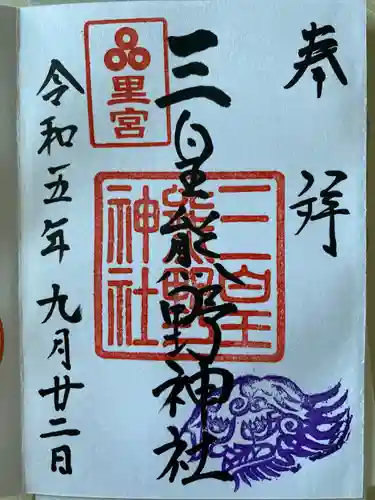 奉拝
三皇熊野神社
里宮
三皇熊野神社
令和五年九月廿二日